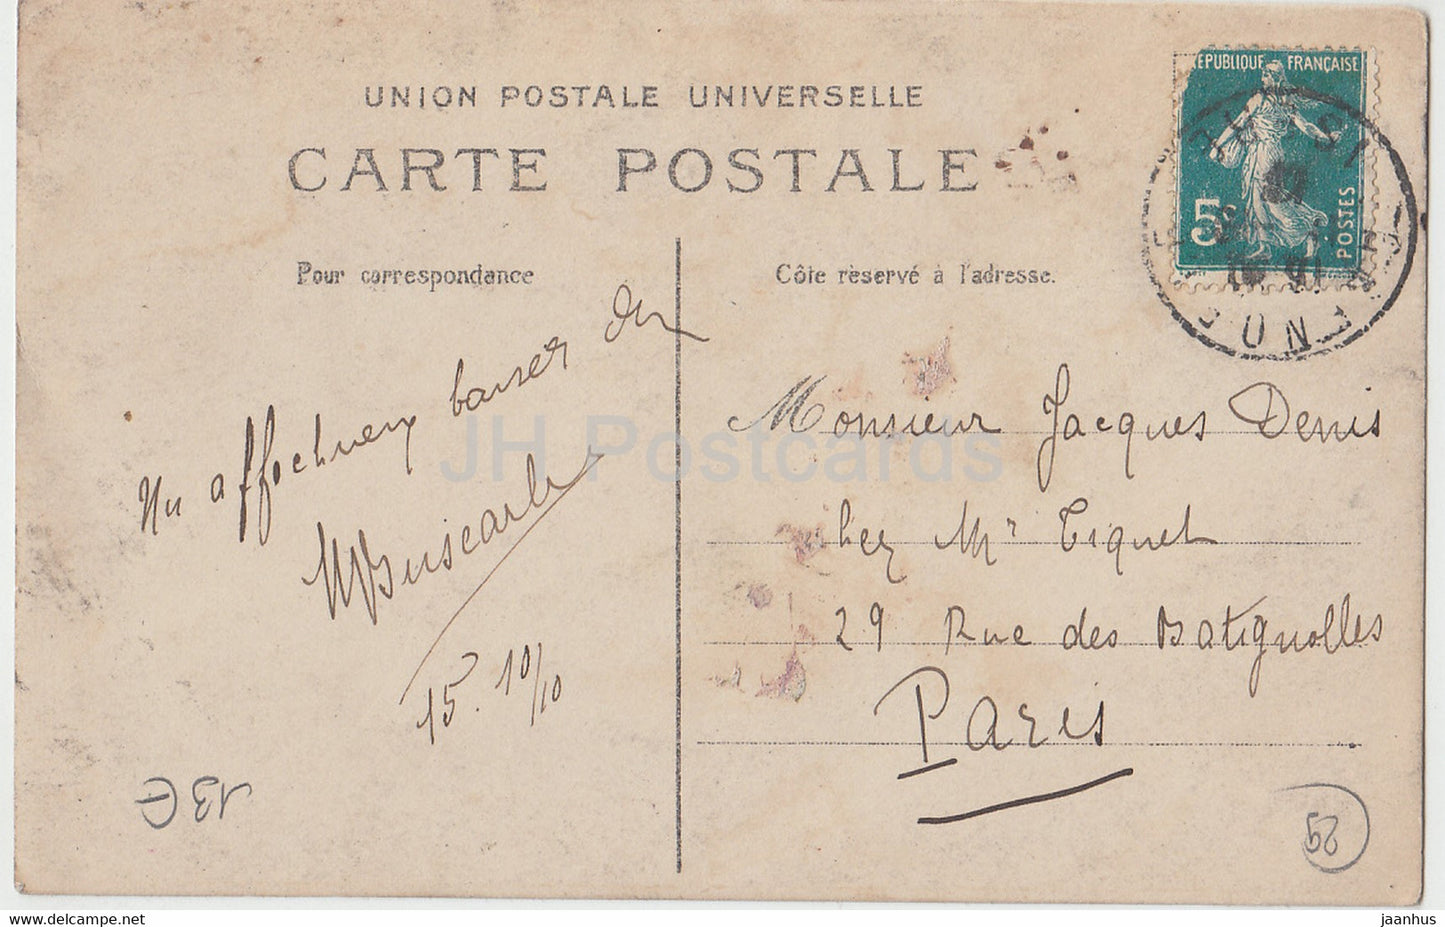 UNION POSTALE UNIVERSELLE
CARTE POSTALE
RÉPUBLIQUE FRANÇAISE
5c
POSTES
Pour correspondance
Côté réservé à l'adresse.
Un affectueux baiser de
15. 10/10
Monsieur Jacques Denis
chez Mr Tiquet
29 Rue des Batignolles
Paris
13€
29
JH Postcards
www.delcampe.net
jaanhus